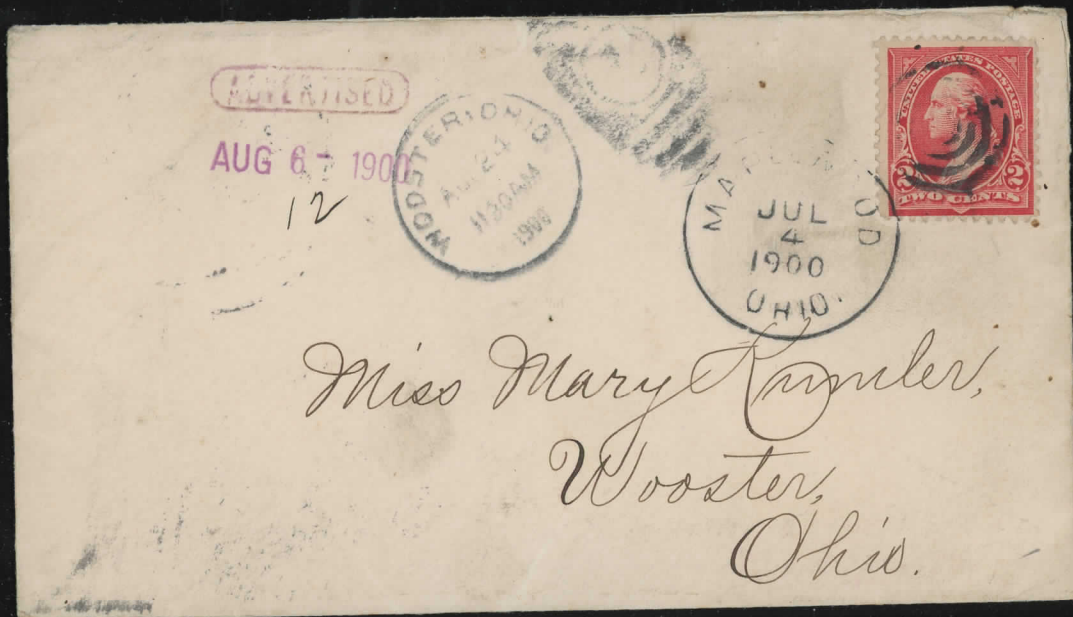 ADVERTISED
AUG 6 - 1900
12
WOOSTER OHIO
AUG 24
1130AM
1900
JUL
4
1900
OHIO.
UNITED STATES POSTAGE
2 2
TWO CENTS
Miss Mary Kumler,
Wooster,
Ohio.